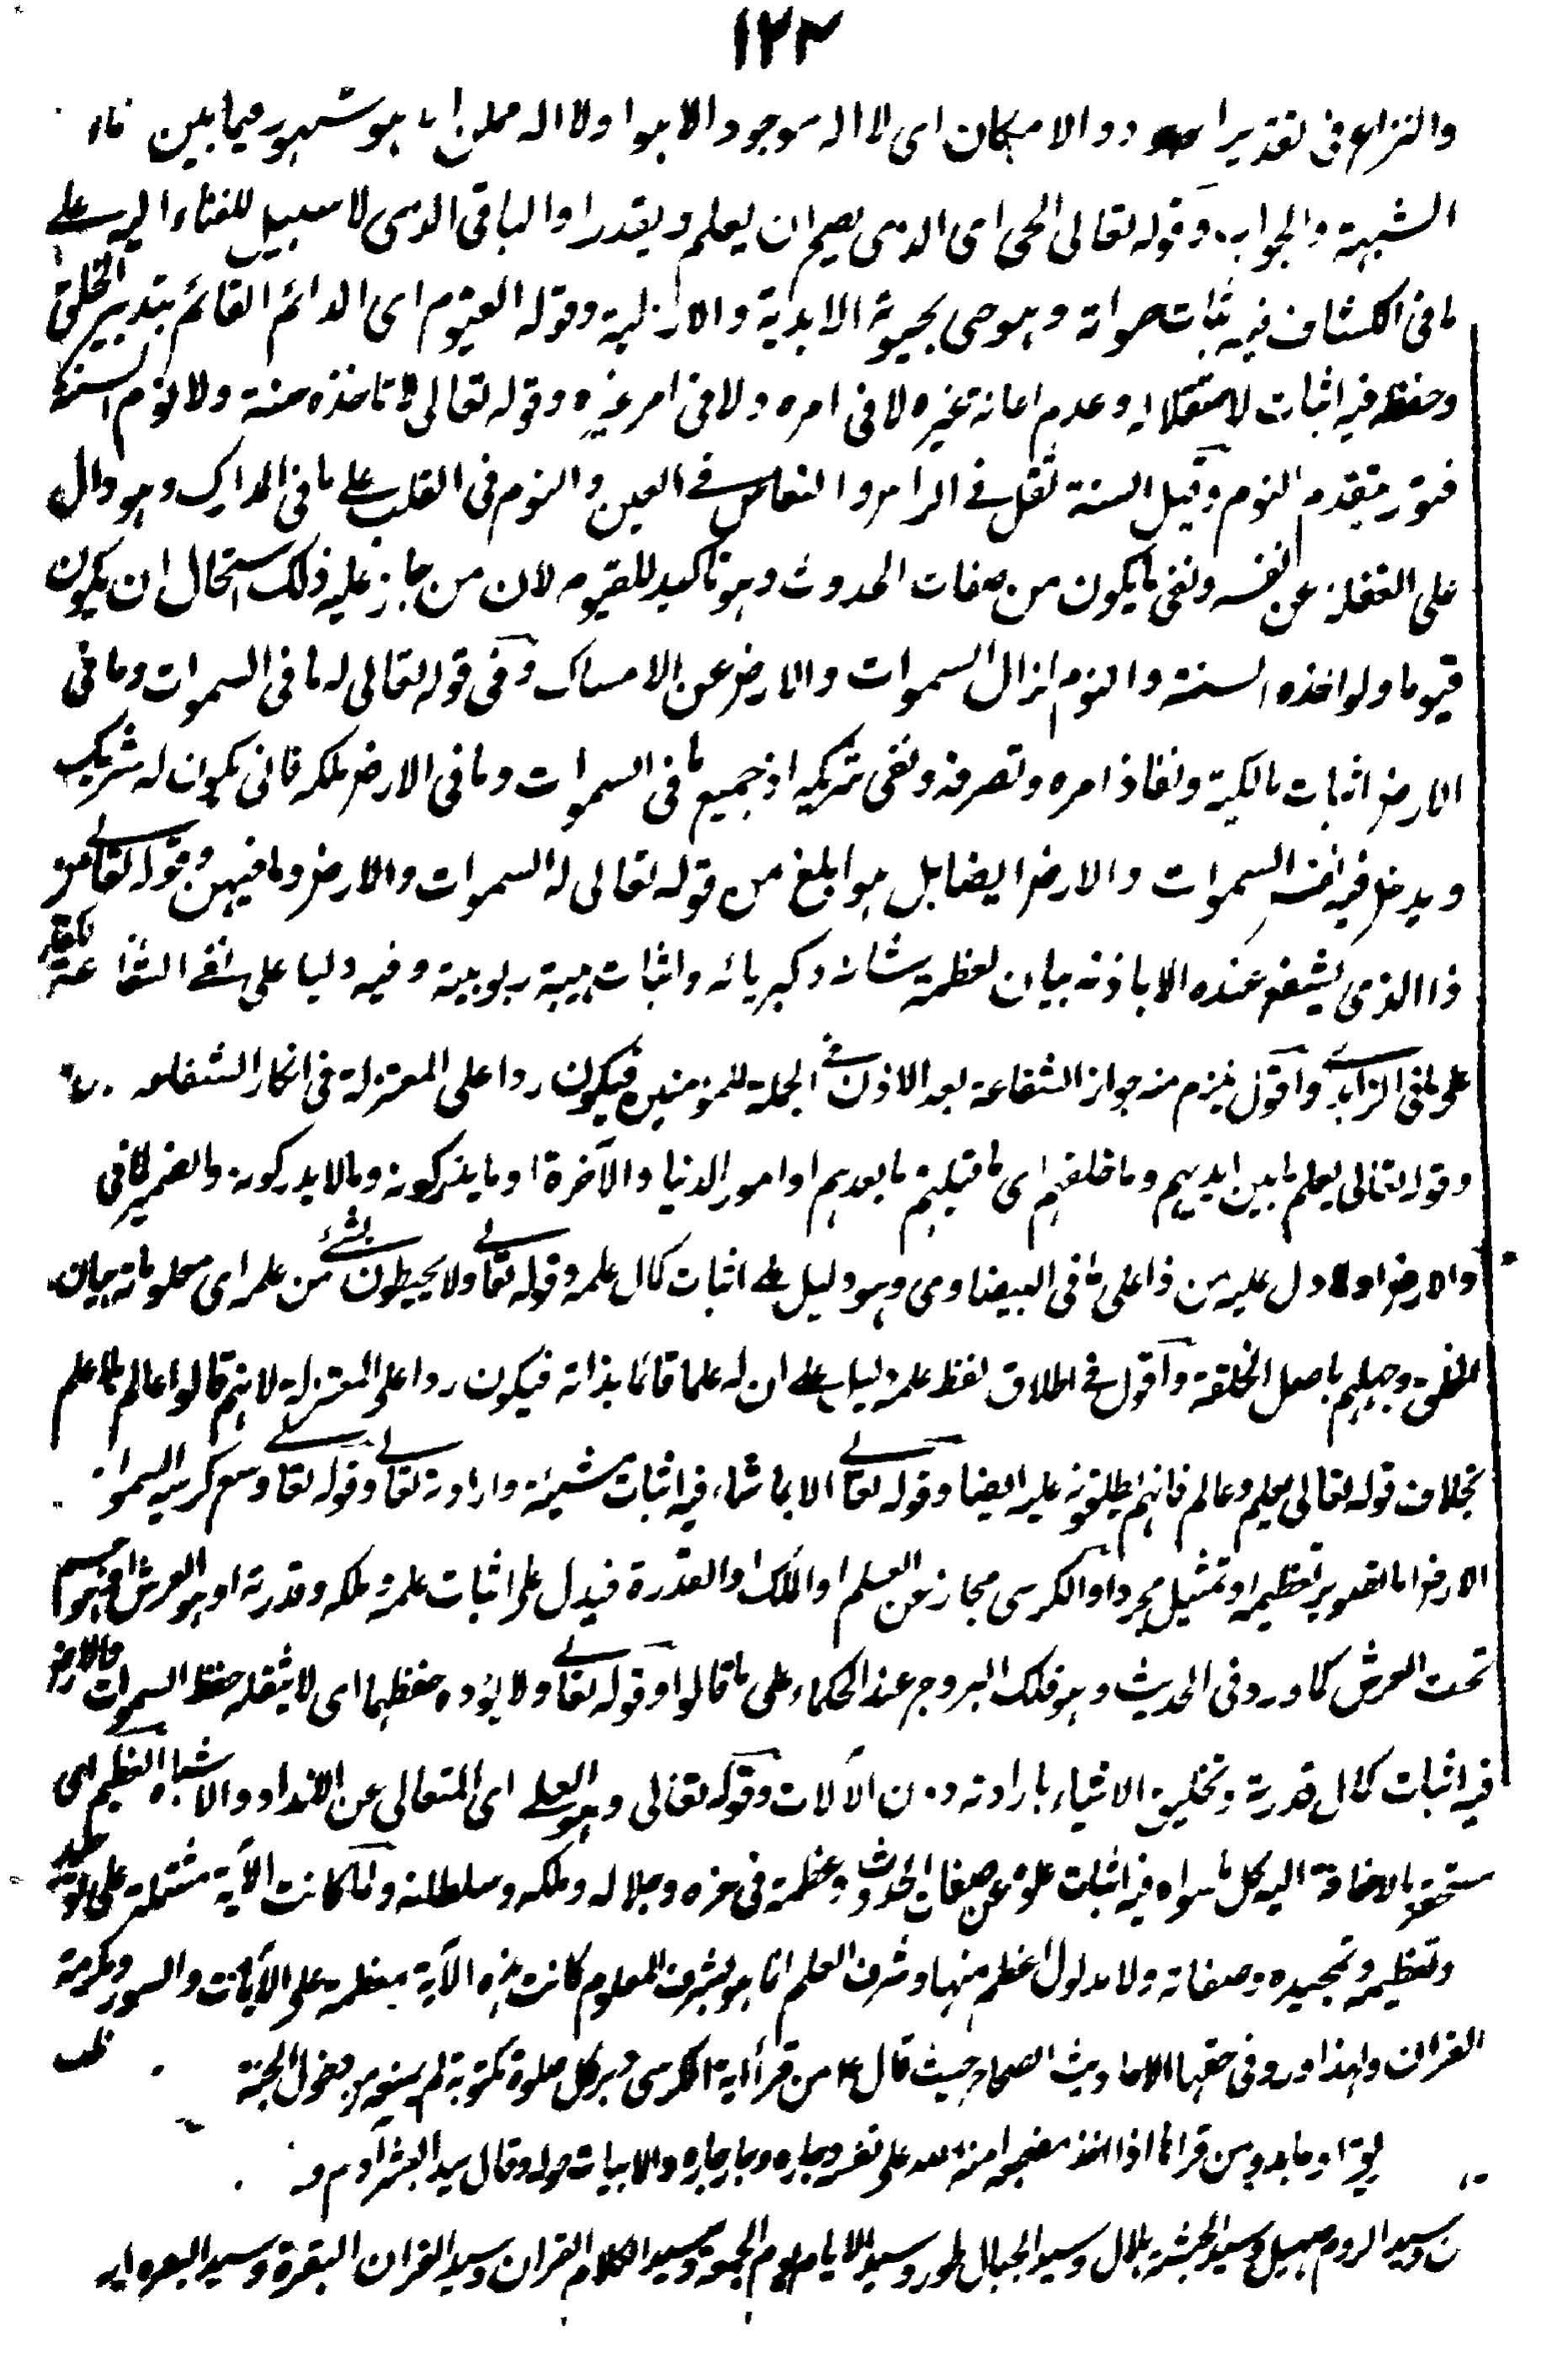 ١٢٣
والنزاع فى تقدير دو الامكان اى لا اله موجود الا هو او لا اله ممكن هو مشهور فيما بين
الشبهة والجواب وقوله تعالى الحى اى الذى يصح ان يعلم ويقدر او الباقى الذى لا سبيل للفناء اليه على
ما فى الكشاف فيه اثبات وهو حى بحيوة الابدية والازلية وقوله القيوم اى الدائم القائم بتدبير الخلق
وحفظه فيه اثبات استقلاله وعدم اعانة غيره لا فى امره ولا فى امر غيره وقوله تعالى لا تاخذه سنة ولا نوم السنة
فتور يتقدم النوم وقيل السنة ثقل فى الراس والنعاس فى العين والنوم فى القلب على ما فى المدارك وهو دال
على الغفلة عن نفسه ونفى ما يكون من صفات الحدوث وهو تاكيد للقيوم لان من جاز عليه ذلك استحال ان يكون
قيوما ولو اخذه السنة والنوم لزال السموات والارض عن الامساك وفى قوله تعالى له ما فى السموات وما فى
الارض اثبات مالكية ونفاذ امره وتصرفه ونفى شريكه اذ جميع ما فى السموات وما فى الارض ملكه فانى يكون له شريك
ويدخل فيه نفس السموات والارض ايضا بل هو ابلغ من قوله تعالى له السموات والارض وما فيهن وقوله تعالى من
ذا الذى يشفع عنده الا باذنه بيان لعظمة شانه وكبريائه واثبات هيبة ربوبية وفيه دليل على نفى الشفاعة
على ما فى الزاهدى واقول يلزم منه جواز الشفاعة بعد الاذن فى الجملة للمؤمنين فيكون ردا على المعتزلة فى انكار الشفاعة
وقوله تعالى يعلم ما بين ايديهم وما خلفهم اى ما قبلهم ما بعدهم او امور الدنيا والآخرة او ما يدركونه وما لا يدركونه والضمير لما فى
والارض او لما دل عليه من ذا على ما فى البيضاوى وهو دليل على اثبات كمال علمه وقوله تعالى ولا يحيطون بشئ من علمه اى معلوماته بيان
وجهلهم باصل الخلقة واقول فى اطلاق لفظ علمه دليل على ان له علما قائما بذاته فيكون ردا على المعتزلة لانهم قالوا عالم بلا علم
بخلاف قوله تعالى يعلم وعالم فانهم يطلقونه عليه ايضا وقوله تعالى الا بما شاء فيه اثبات مشيئة وارادته تعالى وقوله تعالى وسع كرسيه السموات
الارض اما تصوير لعظمته او تمثيل مجرد او الكرسى مجاز عن العلم او الملك او القدرة فيدل على اثبات علمه وملكه وقدرته او هو العرش او جسم
تحت العرش كما ورد فى الحديث وهو فلك البروج عند الحكماء على ما قالوا وقوله تعالى ولا يؤده حفظهما اى لا يثقله حفظ السموات والارض
فيه اثبات كمال قدرته وتخليق الاشياء بارادته دون الآلات وقوله تعالى وهو العلى اى المتعالى عن الانداد والاشباه العظيم اى
مستحقر بالاضافة اليه كل ما سواه فيه اثبات علوه عن صفات الحدوث وعظمة فى عزه وجلاله وملكه وسلطانه ولما كانت الآية مشتملة على توحيد
وتعظيمه وتمجيده وصفاته ولا مدلول اعظم منها وشرف العلم انما هو بشرف المعلوم كانت هذه الآية معظمة على الآيات والسور ومكرمة
القران ولهذا ورد فى حقها الاحاديث الصحاح حيث قال ع من قرأ اية الكرسى دبر كل صلوة مكتوبة لم يمنعه من دخول الجنة
او عابد ومن قرأها اذا اخذ مضجعه امنه الله على نفسه وجاره وجار جاره والابيات حوله وقال سيد البشر آدم
وسيد الروم صهيب وسيد الحبشة بلال وسيد الجبال طور وسيد الايام يوم الجمعة وسيد الكلام القران وسيد القران البقرة وسيد البقرة اية